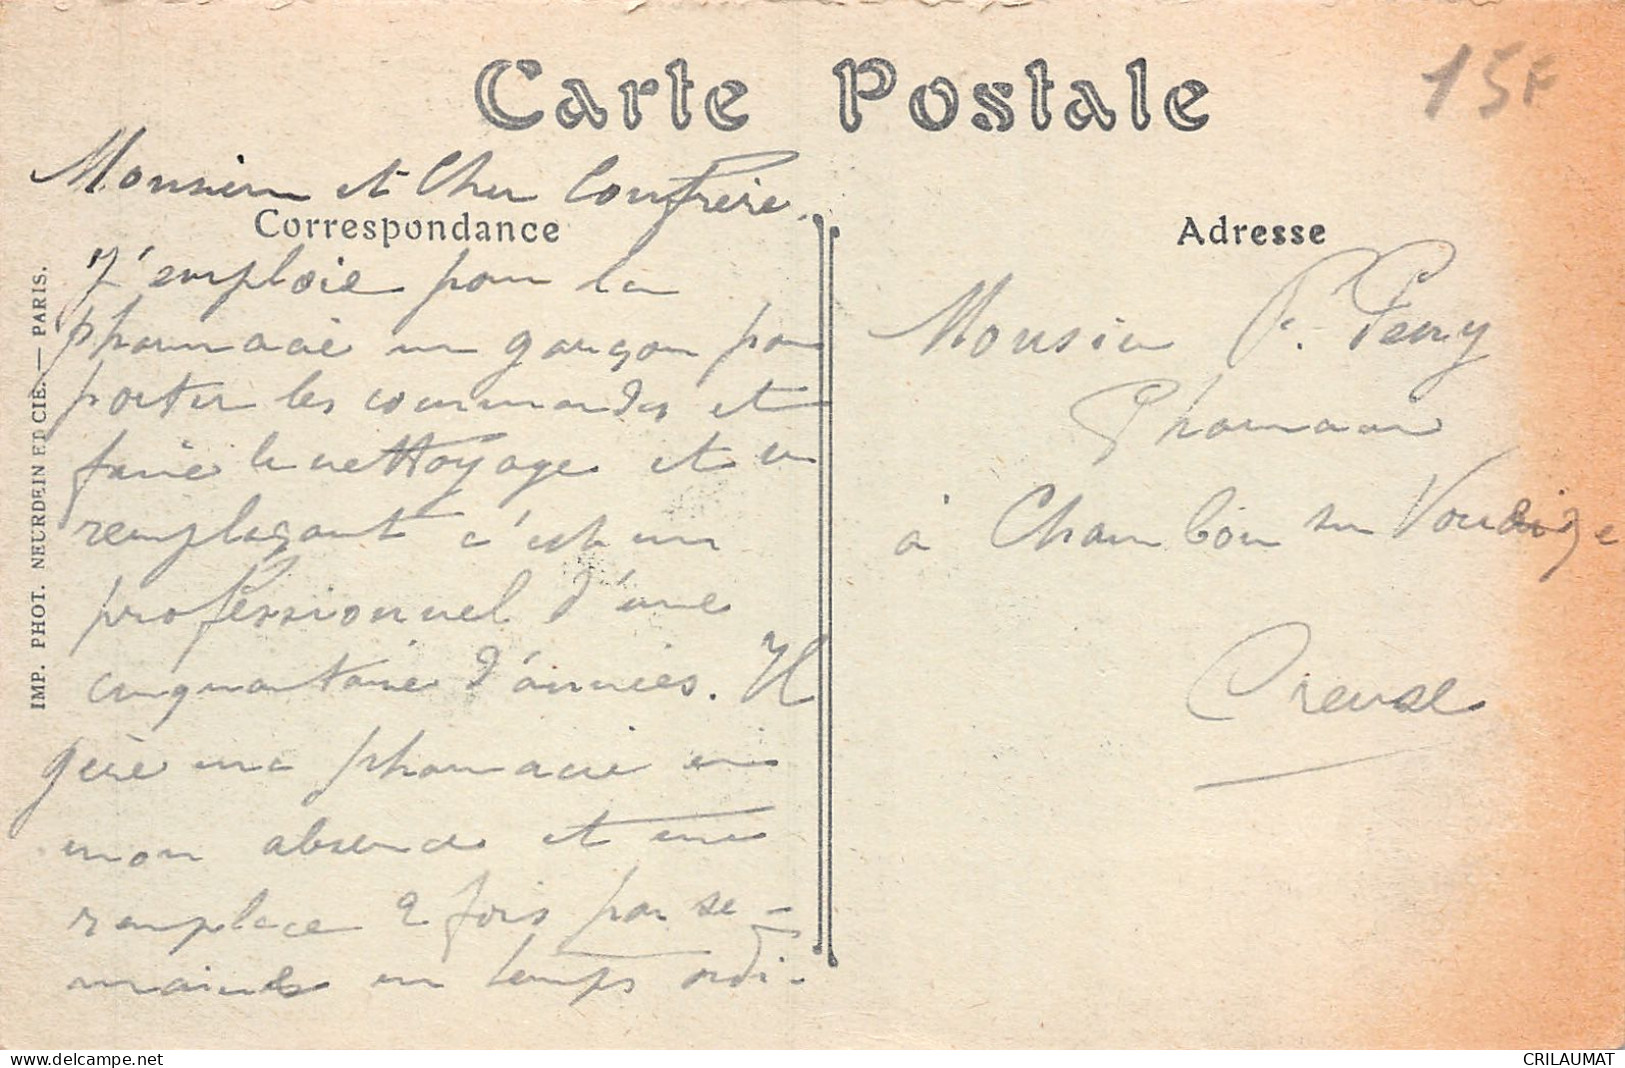 Carte Postale
15F
Monsieur et Cher Confrère.
Correspondance
J'emploie pour la
pharmacie un garçon pour
porter les commandes et
faire le nettoyage et un
remplaçant c'est un
professionnel d'une
cinquantaine d'années. Il
gère ma pharmacie en
mon absence et me
remplace 2 fois par se-
maine en temps ordi-
Adresse
Monsieur P. Peny
Pharmacien
à Chambon sur Voueize
Creuse
IMP. PHOT. NEURDEIN ET CIE. — PARIS.
www.delcampe.net
CRILAUMAT